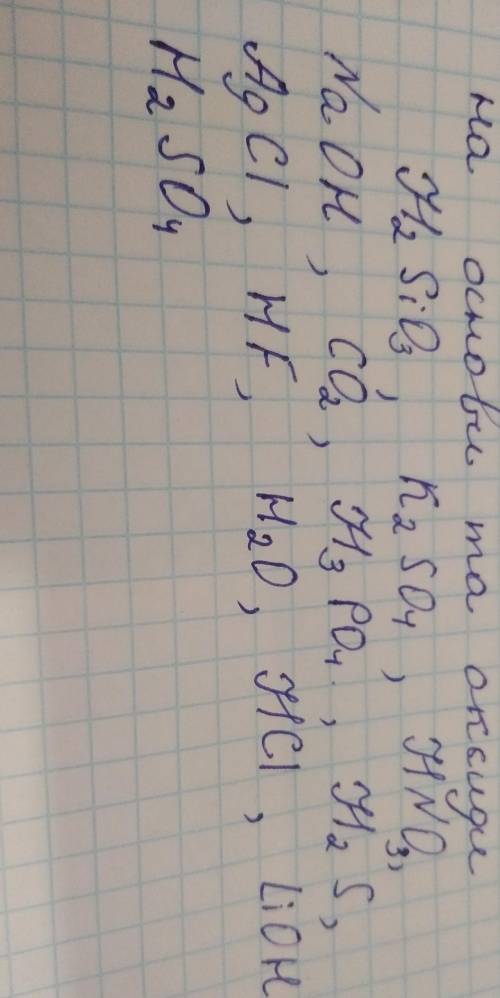 на основи та оксиди
H₂SiO₃, K₂SO₄, HNO₃,
NaOH, CO₂, H₃PO₄., H₂S,
AgCl, HF, H₂O, HCl, LiOH
H₂SO₄